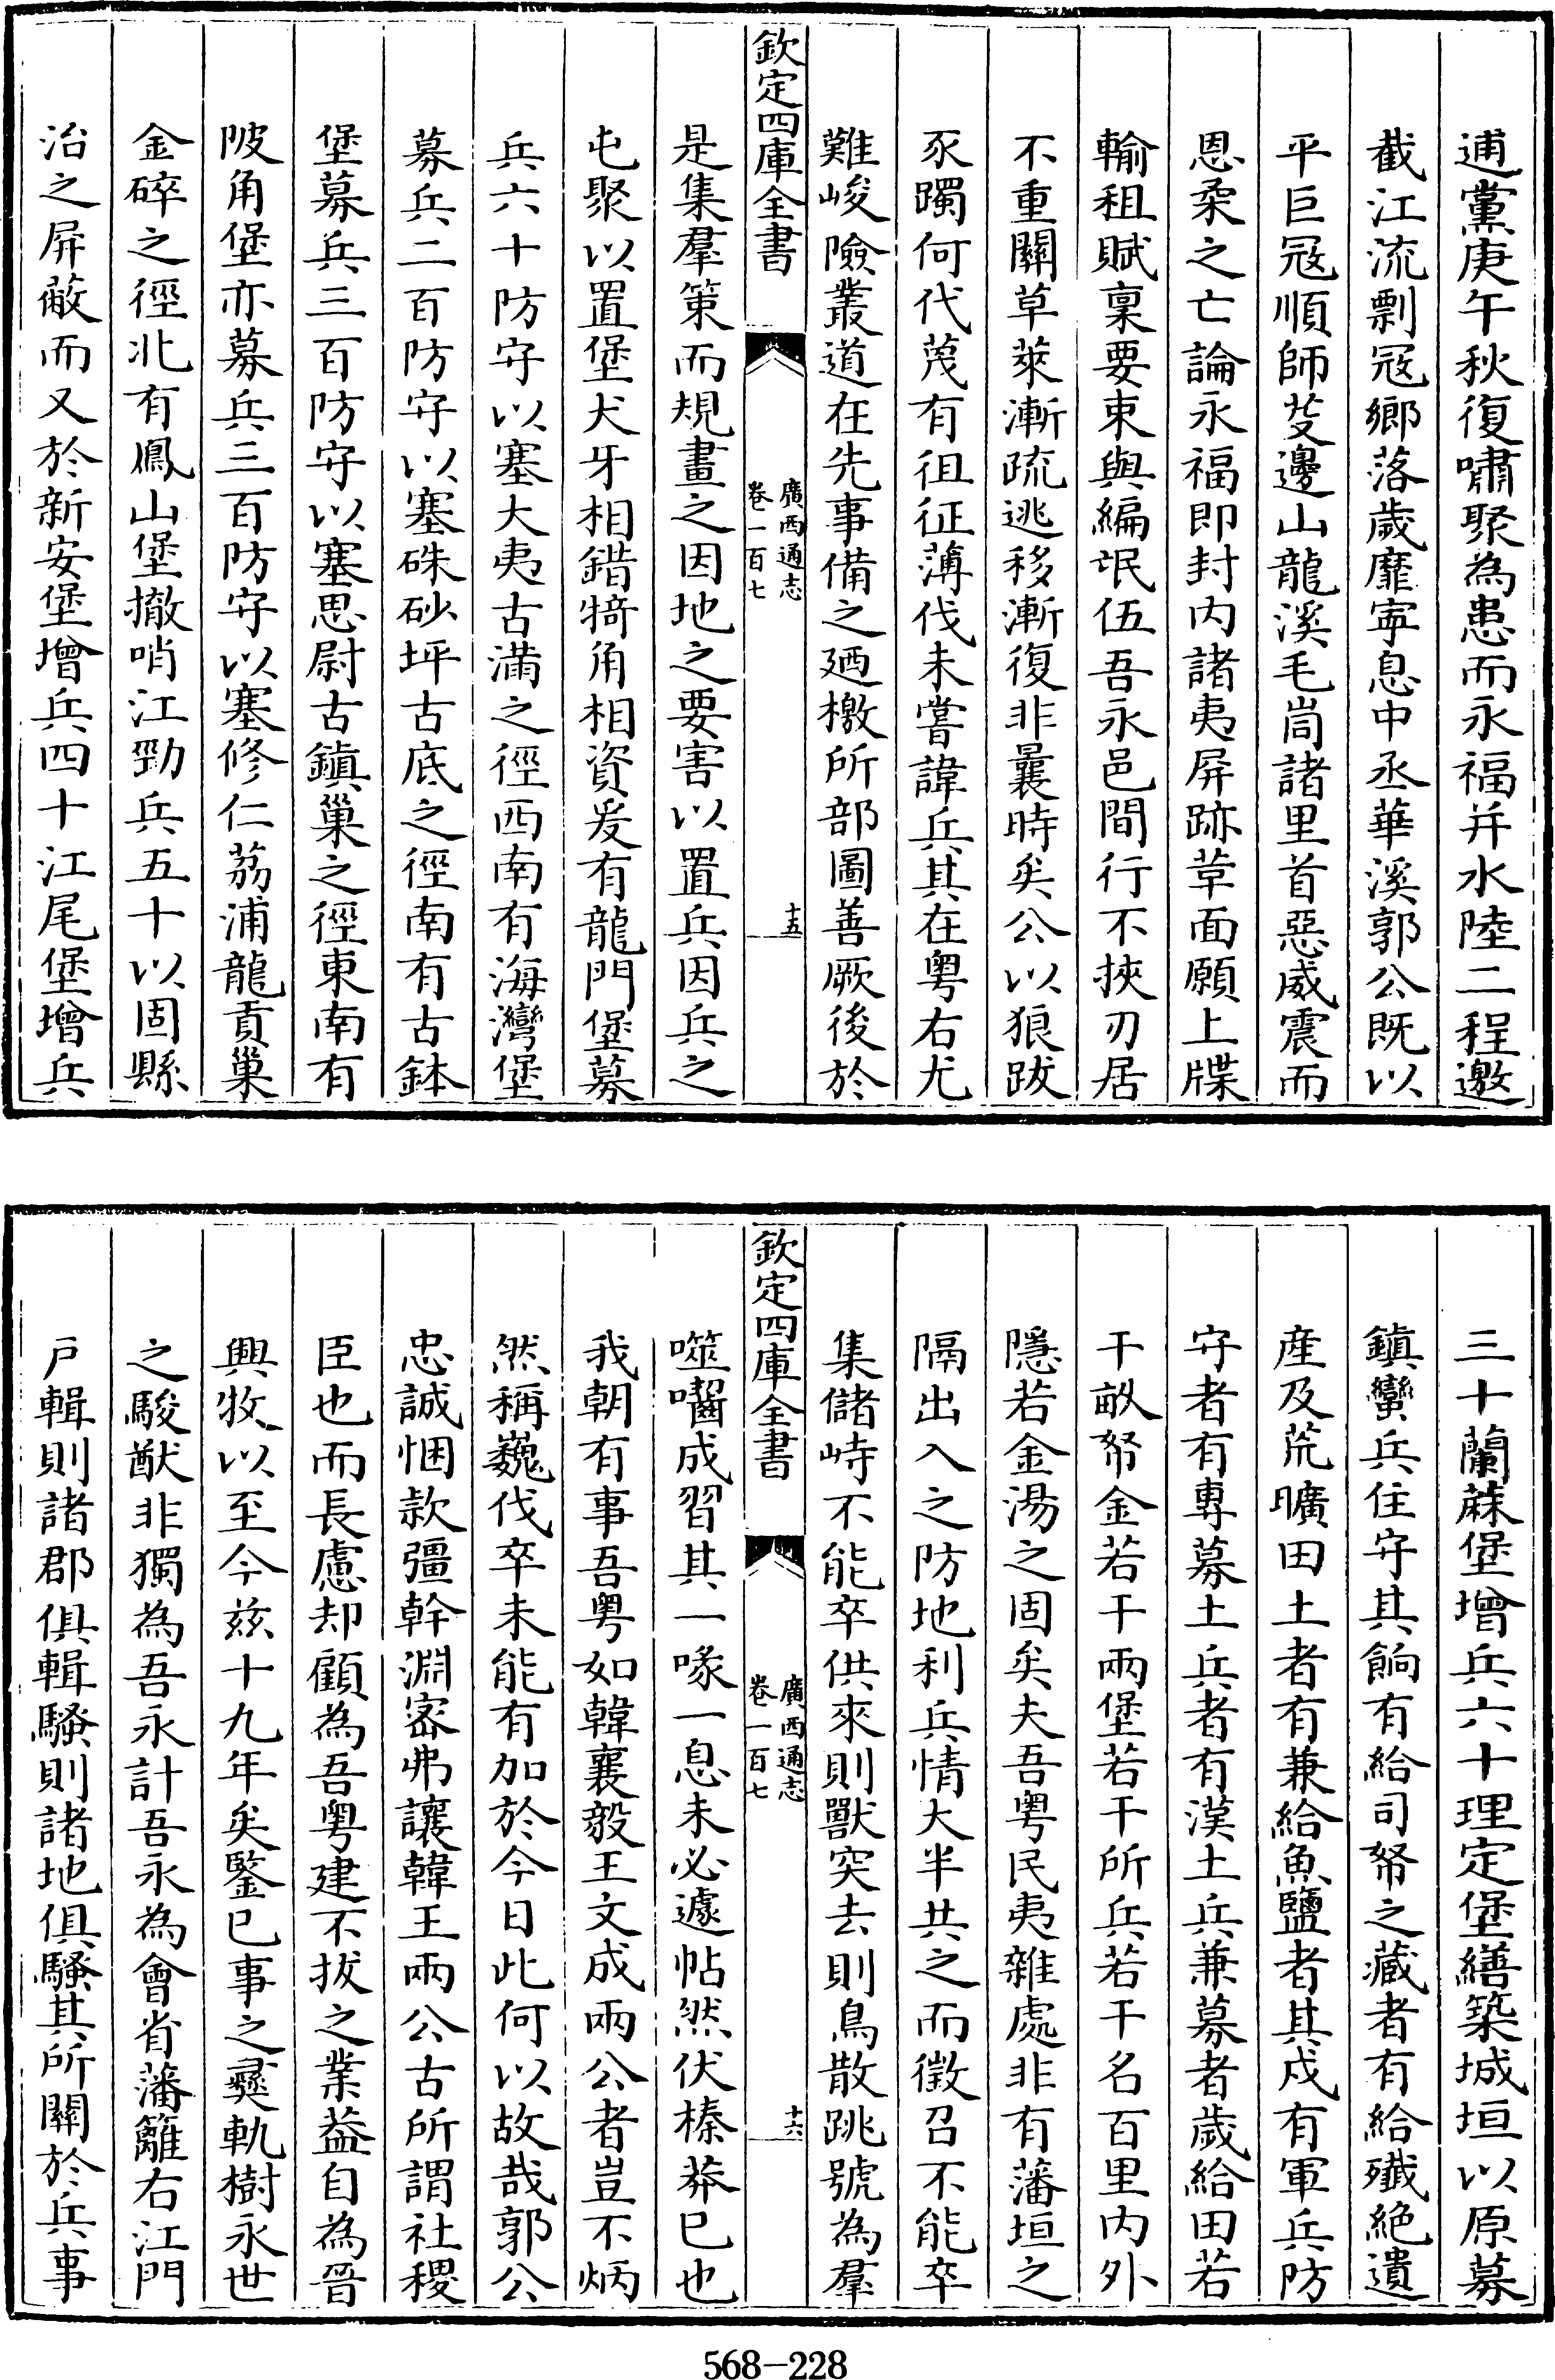 逋黨庚午秋復嘯聚為患而永福并水陸二程邀
截江流剽冦鄉落歲靡寧息中丞華溪郭公既以
平巨冦順師芟邊山龍溪毛峝諸里首惡威震而
恩柔之亡論永福即封内諸夷屏跡革面願上牒
輸租賦稟要束與編氓伍吾永邑間行不挾刃居
不重關草萊漸疏逃移漸復非曩時矣公以狼跋
豕躅何代蔑有徂征薄伐未嘗諱兵其在粤右尤
難峻險叢道在先事備之廼檄所部圖善厥後於
欽定四庫全書
廣西通志
卷一百七
十五
是集羣策而規畫之因地之要害以置兵因兵之
屯聚以置堡犬牙相錯犄角相資爰有龍門堡募
兵六十防守以塞大夷古滿之徑西南有海灣堡
募兵二百防守以塞硃砂坪古底之徑南有古鉢
堡募兵三百防守以塞思尉古鎮巢之徑東南有
陂角堡亦募兵三百防守以塞修仁荔浦龍貢巢
金碎之徑北有鳳山堡撤哨江勁兵五十以固縣
治之屏蔽而又於新安堡增兵四十江尾堡增兵
三十蘭蔴堡增兵六十理定堡繕築城垣以原募
鎮蠻兵住守其餉有給司帑之藏者有給殲絶遺
産及荒曠田土者有兼給魚鹽者其戍有軍兵防
守者有專募土兵者有漢土兵兼募者歲給田若
干畝帑金若干兩堡若干所兵若干名百里内外
隱若金湯之固矣夫吾粤民夷雜處非有藩垣之
隔出入之防地利兵情大半共之而徵召不能卒
集儲峙不能卒供來則獸突去則鳥散跳號為羣
欽定四庫全書
廣西通志
卷一百七
十六
噬嚙成習其一喙一息未必遽帖然伏榛莽已也
我朝有事吾粤如韓襄毅王文成兩公者豈不炳
然稱巍伐卒未能有加於今日此何以故哉郭公
忠誠悃款彊幹淵宻弗讓韓王兩公古所謂社稷
臣也而長慮却顧為吾粤建不拔之業益自為晉
興牧以至今兹十九年矣鑒已事之彛軌樹永世
之駿猷非獨為吾永計吾永為會省藩籬右江門
戸輯則諸郡俱輯騷則諸地俱騷其所關於兵事
568-228